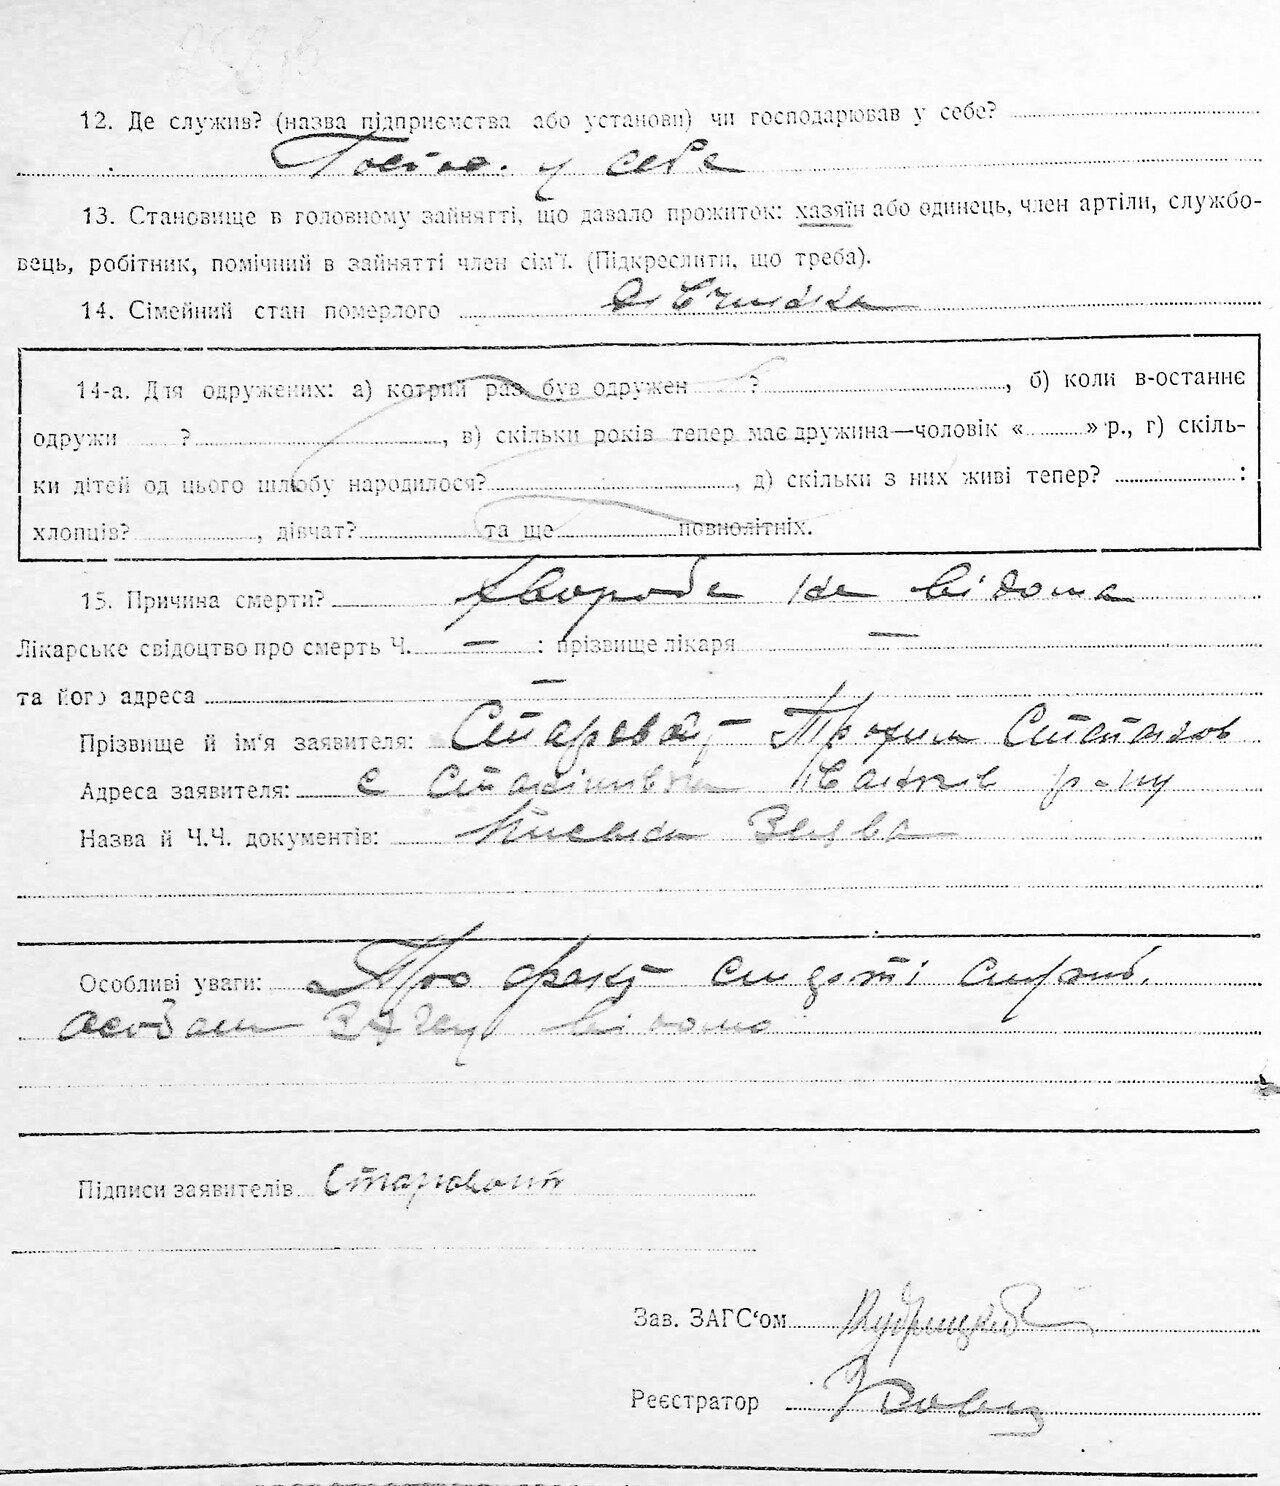 12. Де служив? (назва підприємства або установи) чи господарював у себе?
Госпо. у себе
13. Становище в головному зайнятті, що давало прожиток: хазяїн або одинець, член артіли, службо-
вець, робітник, помічний в зайнятті член сім'ї. (Підкреслити, що треба).
14. Сімейний стан померлого
14-а. Для одружених: а) котрий раз був одружен ?, б) коли в-останнє
одружи ?, в) скільки років тепер має дружина—чоловік « » р., г) скіль-
ки дітей од цього шлюбу народилося?, д) скільки з них живі тепер? :
хлопців?, дівчат? та ще повнолітніх.
15. Причина смерти? Хвороба не відома
Лікарське свідоцтво про смерть Ч. — : прізвище лікаря —
та його адреса —
Прізвище й ім'я заявителя: Старовойт Трохим
Адреса заявителя: с р-ну
Назва й Ч.Ч. документів:
Особливі уваги: Про факт смерті
особам ЗАГСу відомо
Підписи заявителів Старовойт
Зав. ЗАГС'ом Кудрицкий
Реєстратор